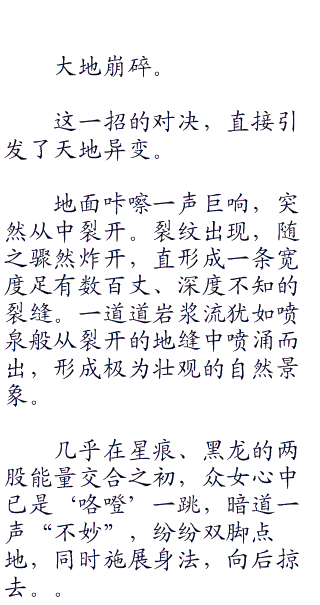 大地崩碎。
这一招的对决，直接引
发了天地异变。
地面咔嚓一声巨响，突
然从中裂开。裂纹出现，随
之骤然炸开，直形成一条宽
度足有数百丈、深度不知的
裂缝。一道道岩浆流犹如喷
泉般从裂开的地缝中喷涌而
出，形成极为壮观的自然景
象。
几乎在星痕、黑龙的两
股能量交合之初，众女心中
已是‘咯噔’一跳，暗道一
声“不妙”，纷纷双脚点
地，同时施展身法，向后掠
去。。